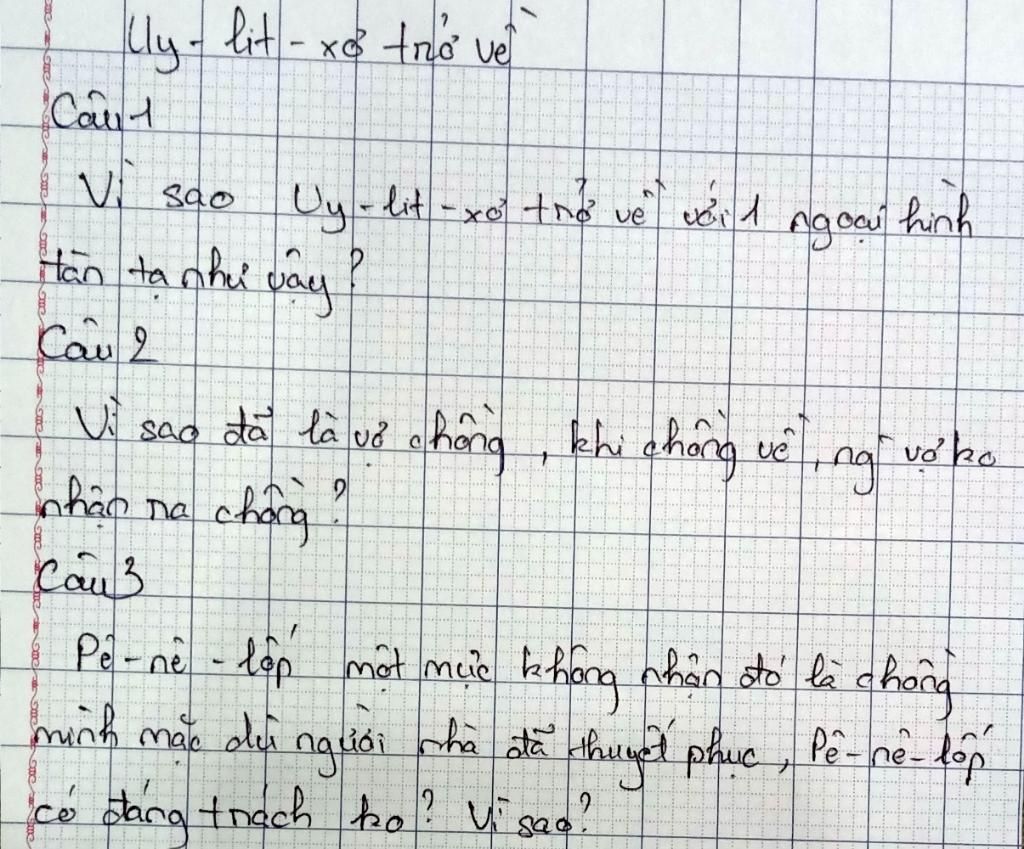 Uy-lit-xơ trở về
Câu 1
Vì sao Uy-lit-xơ trở về với 1 ngoại hình
tàn tạ như vậy?
Câu 2
Vì sao đã là vợ chồng, khi chồng về, ng vợ ko
nhận na chồng?
Câu 3
Pê-nê-lốp một mực không nhận đó là chồng
mình mặc dù người nhà đã thuyết phục, Pê-nê-lốp
có đáng trách ko? Vì sao?